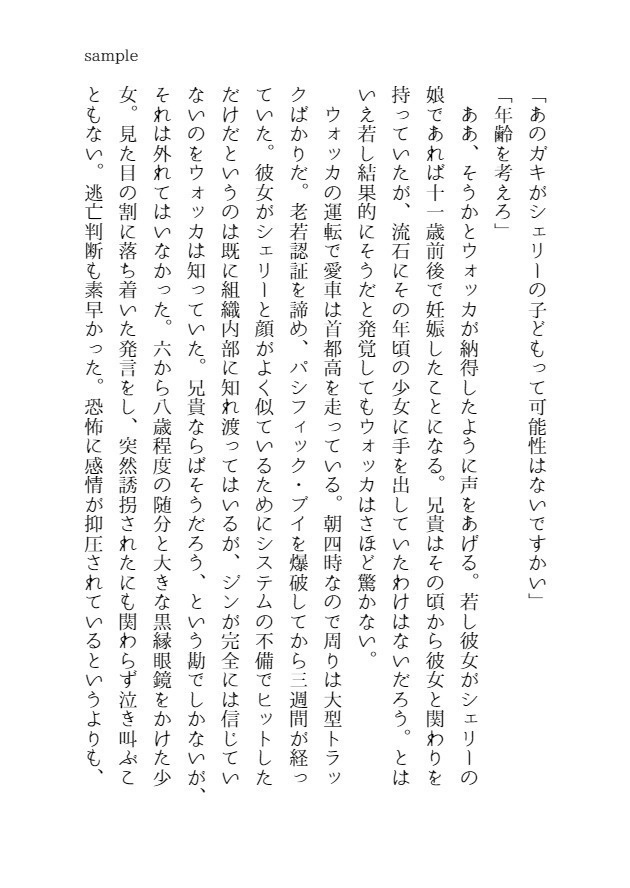 sample
「あのガキがシェリーの子どもって可能性はないですかい」
「年齢を考えろ」
　ああ、そうかとウォッカが納得したように声をあげる。若し彼女がシェリーの
娘であれば十一歳前後で妊娠したことになる。兄貴はその頃から彼女と関わりを
持っていたが、流石にその年頃の少女に手を出していたわけはないだろう。とは
いえ若し結果的にそうだと発覚してもウォッカはさほど驚かない。
　ウォッカの運転で愛車は首都高を走っている。朝四時なので周りは大型トラッ
クばかりだ。老若認証を諦め、パシフィック・ブイを爆破してから三週間が経っ
ていた。彼女がシェリーと顔がよく似ているためにシステムの不備でヒットした
だけだというのは既に組織内部に知れ渡ってはいるが、ジンが完全には信じてい
ないのをウォッカは知っていた。兄貴ならばそうだろう、という勘でしかないが、
それは外れてはいなかった。六から八歳程度の随分と大きな黒縁眼鏡をかけた少
女。見た目の割に落ち着いた発言をし、突然誘拐されたにも関わらず泣き叫ぶこ
ともない。逃亡判断も素早かった。恐怖に感情が抑圧されているというよりも、